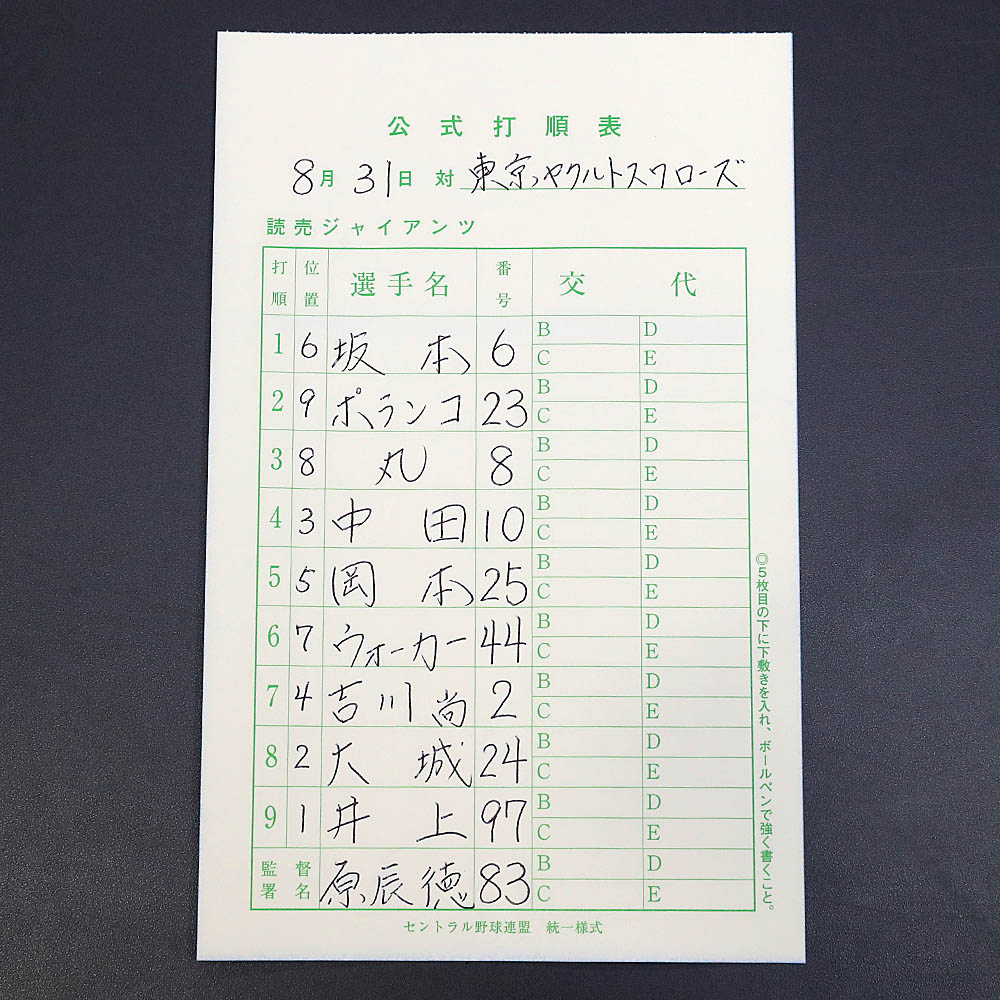 公式打順表
8月31日 対 東京ヤクルトスワローズ
読売ジャイアンツ
打順 位置 選手名 番号 交代
1 6 坂本 6 B C D E
2 9 ポランコ 23 B C D E
3 8 丸 8 B C D E
4 3 中田 10 B C D E
5 5 岡本 25 B C D E
6 7 ウォーカー 44 B C D E
7 4 吉川尚 2 B C D E
8 2 大城 24 B C D E
9 1 井上 97 B C D E
監督署名 原辰徳 83 B C D E
◎5枚目の下に下敷きを入れ、ボールペンで強く書くこと。
セントラル野球連盟 統一様式